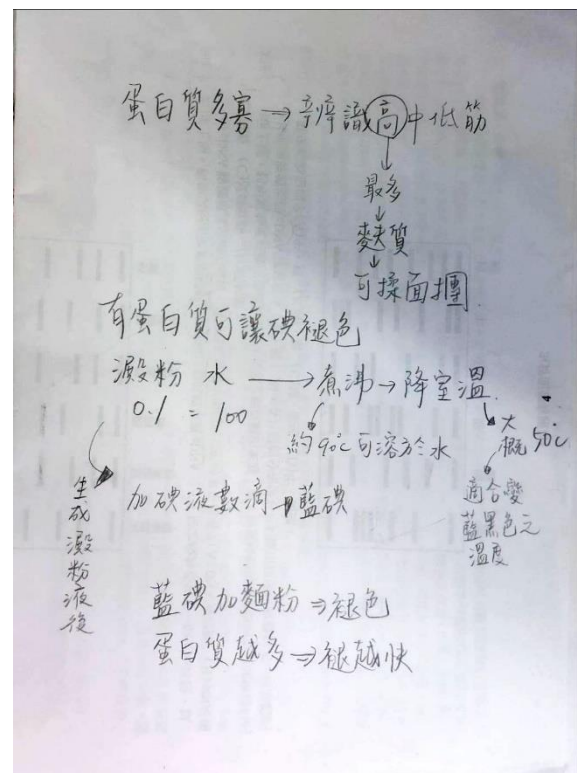 蛋白質多寡→辛瘁識高中低筋
↓
最多
↓
麩質
↓
可揉面摑
有蛋白質可讓碘褪色
澱粉 水 → 煮沸→降室溫
0.1 = 100
約90℃可溶於水
大概50℃
適合變
藍黑色之
溫度
生成澱粉液後
加碘液數滴→藍碘
藍碘加麵粉⇒褪色
蛋白質越多⇒褪越快